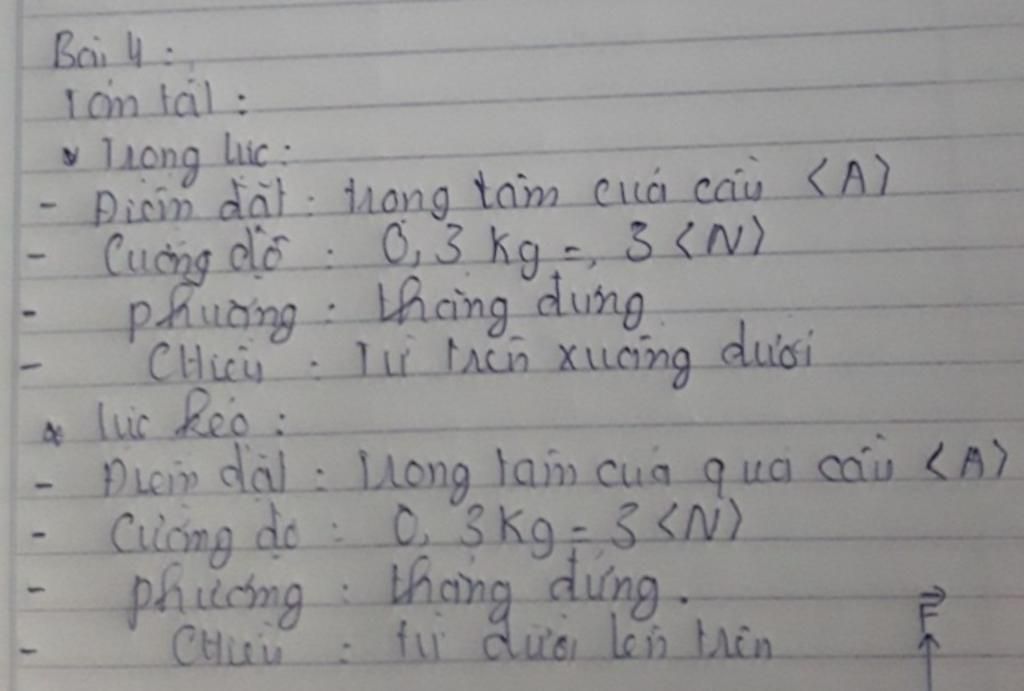 Bài 4 :
Tóm tắt :
* Trọng lực :
- Điểm đặt : trọng tâm của cầu <A>
- Cường độ : 0,3 Kg = 3 <N>
- phương : thẳng đứng
- CHiều : Từ trên xuống dưới
* lực kéo :
- Điểm đặt : Trọng tâm của quả cầu <A>
- Cường độ : 0,3 Kg = 3 <N>
- phương : thẳng đứng .
- CHiều : từ dưới lên trên
F